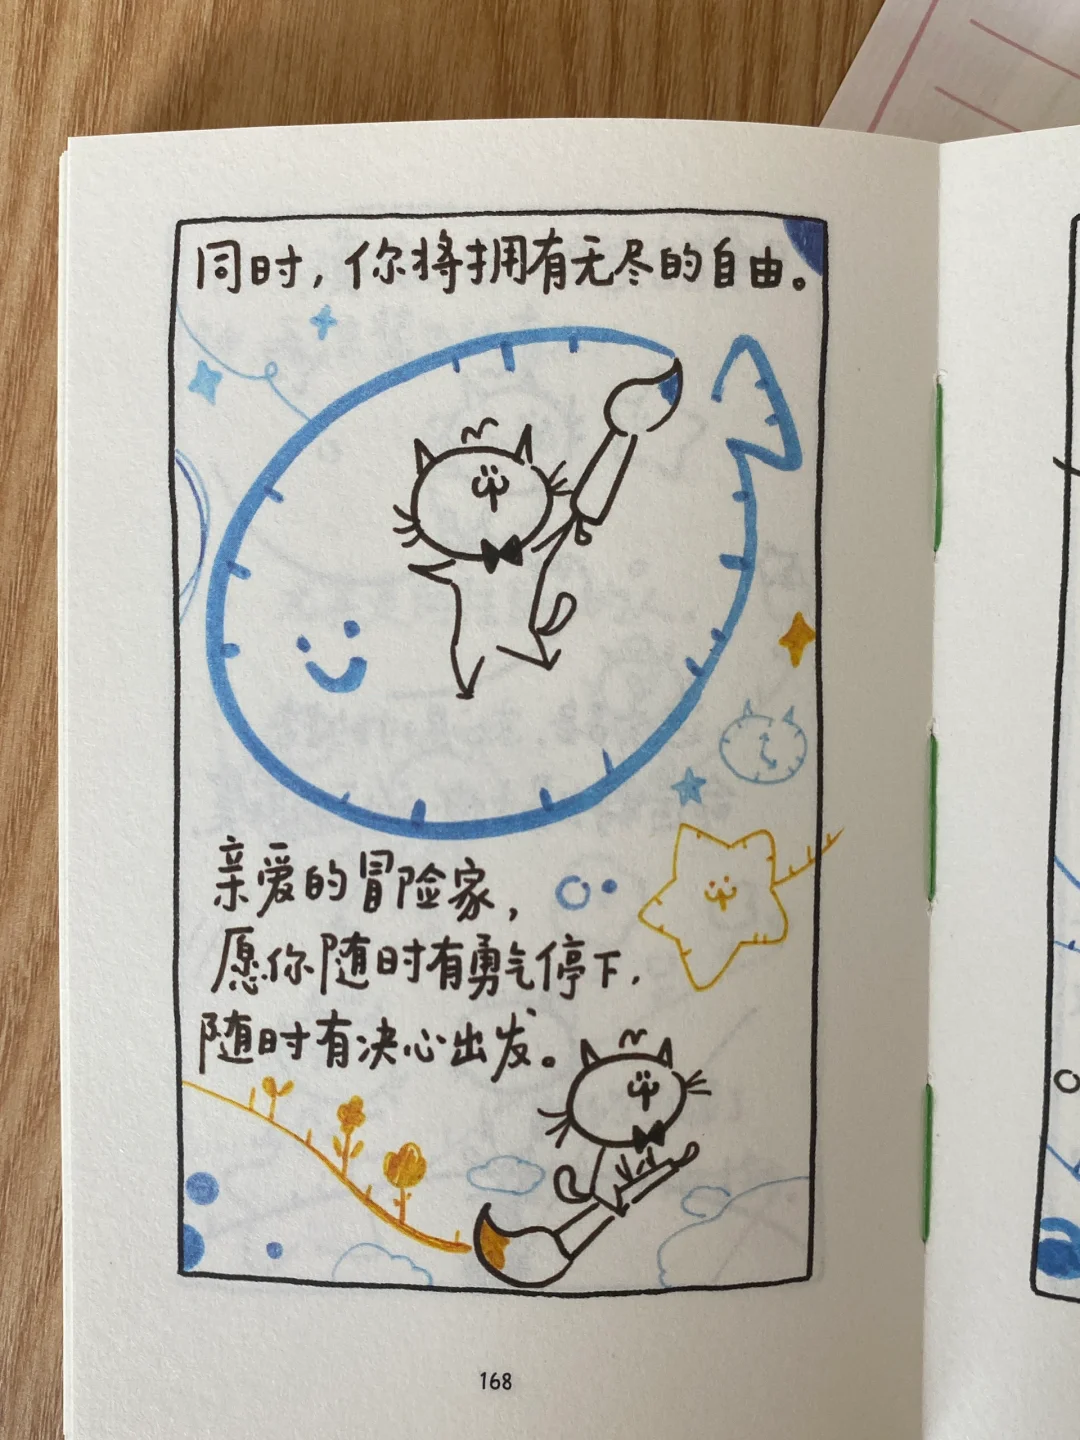 同时，你将拥有无尽的自由。
亲爱的冒险家，
愿你随时有勇气停下，
随时有决心出发。
168